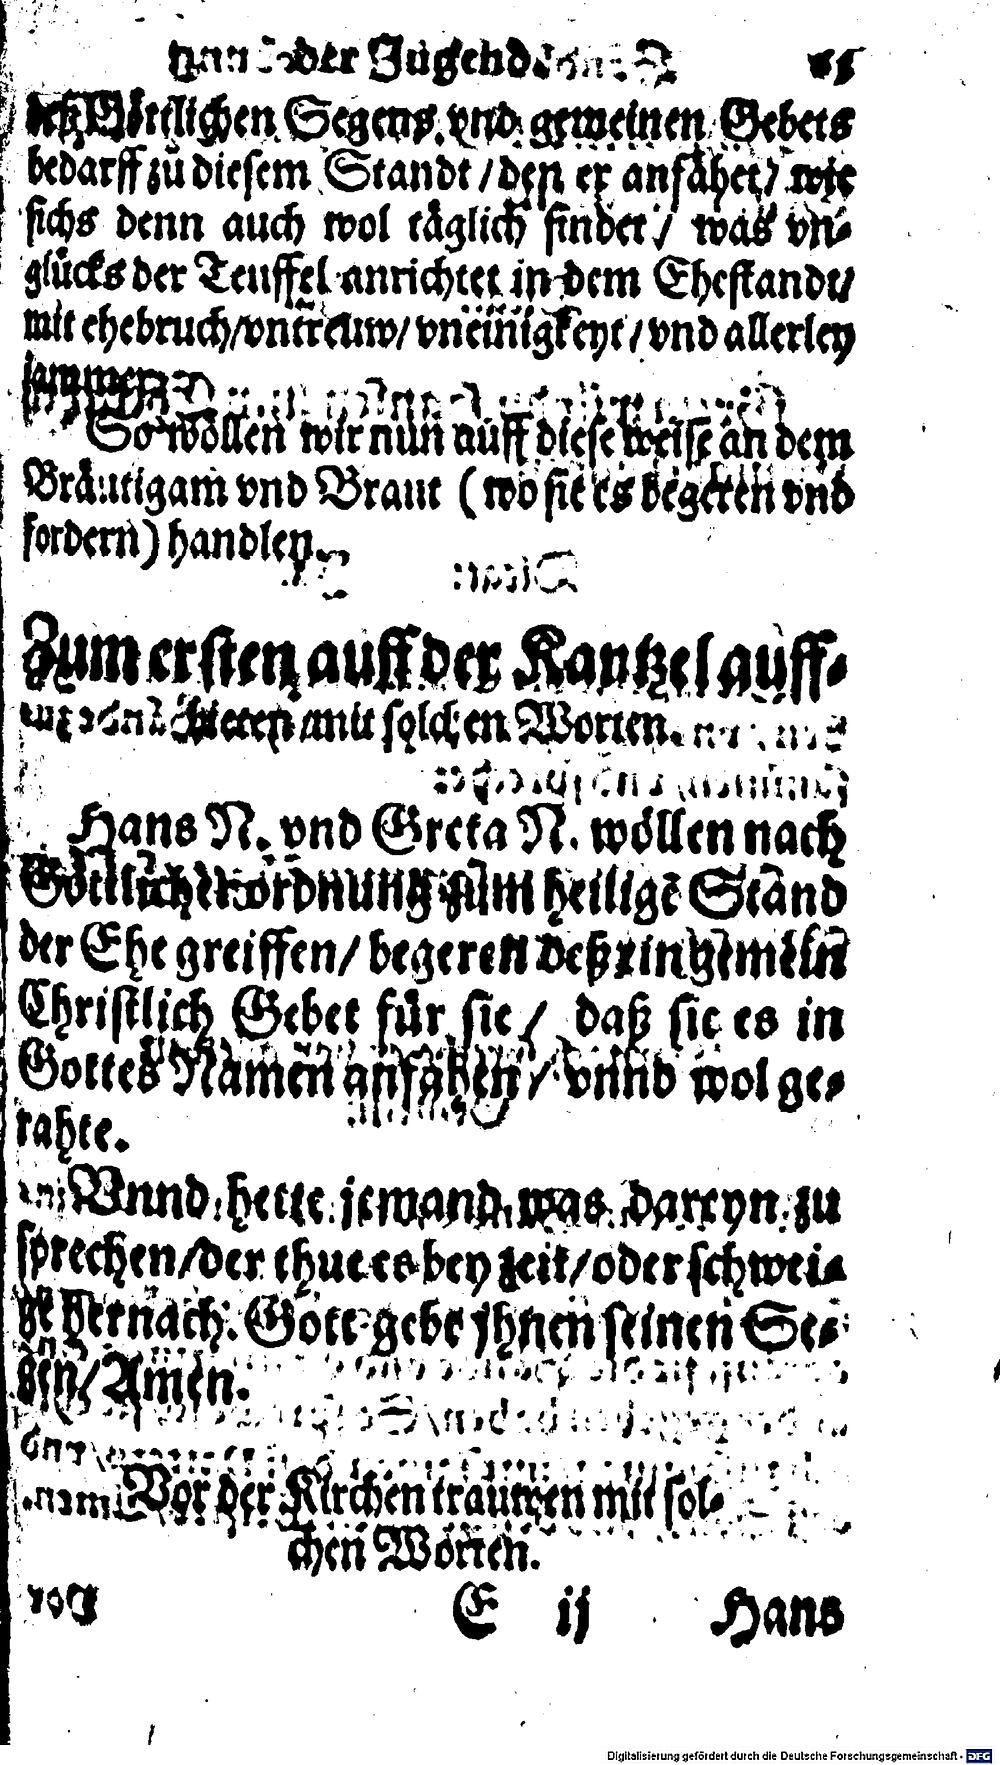 der Jugend.
deß Göttlichen Segens vnd gemeinen Gebets
bedarff zu diesem Standt / den er anfähet / wie
sichs denn auch wol täglich findet / was vn-
glücks der Teuffel anrichtet in dem Ehestandt /
mit ehebruch / vntreuw / vneinigkeyt / vnd allerley
jammer.
So wöllen wir nun auff diese weise an dem
Bräutigam vnd Braut ( wo sie es begeren vnd
fordern ) handlen.
Zum ersten auff der Kantzel auff-
bieten mit solchen Worten.
Hans N. vnd Greta N. wöllen nach
Göttlicher ordnung zum heiligē Stand
der Ehe greiffen / begeren deß ein gemein
Christlich Gebet für sie / daß sie es in
Gottes Namen anfahen / vnnd wol ge-
rahte.
Vnnd hette jemand was dareyn zu
sprechen / der thue es bey zeit / oder schwei-
ge hernach. Gott gebe jhnen seinen Se-
gen / Amen.
Vor der Kirchen trauwen mit sol-
chen Worten.
E ij Hans
Digitalisierung gefördert durch die Deutsche Forschungsgemeinschaft - DFG